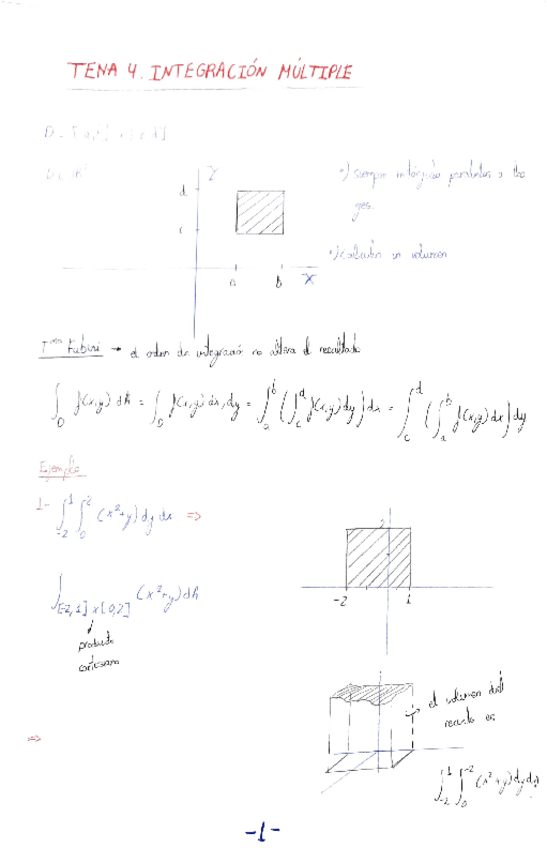 TEMA 4. INTEGRACIÓN MÚLTIPLE
D = [a,b] x [c,d]
Y
d
c
a b X
•) calculan un volumen
Tma Fubini → el orden de integración no altera el resultado
∫_D f(x,y) dA = ∫_D f(x,y) dx, dy = ∫_a^b (∫_c^d f(x,y) dy) dx = ∫_c^d (∫_a^b f(x,y) dx) dy
Ejemplo
1- ∫_{-2}^1 ∫_0^2 (x²+y) dy dx ⇒
2
-2 1
∫_{[-2,1]x[0,2]} (x²+y) dA
producto
cartesiano
el volumen del
recinto es
⇒
∫_{-2}^1 ∫_0^{-2} (x²+y) dy dx
-1-